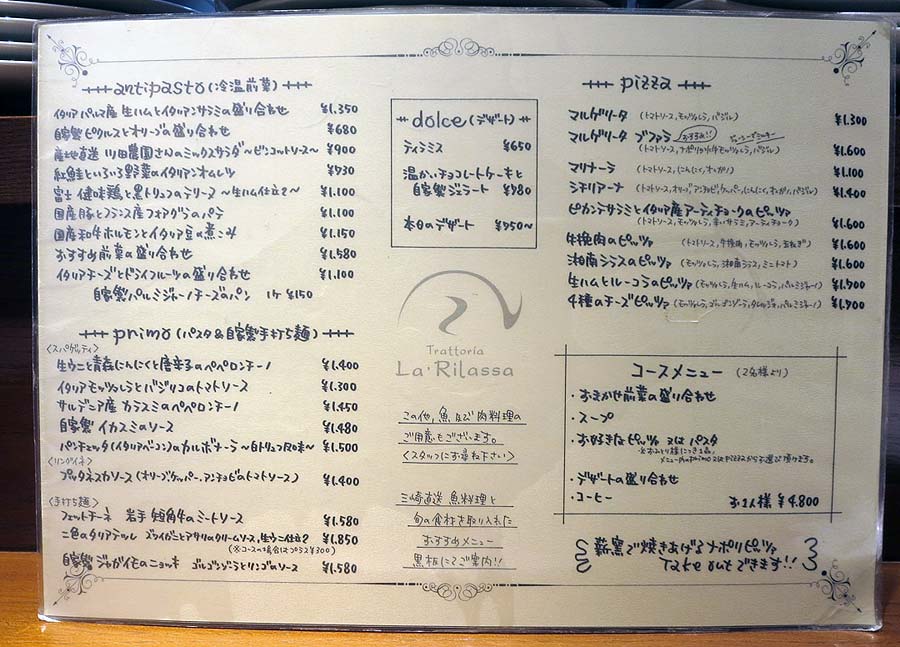 antipasto (冷温前菜)
イタリア パルマ産 生ハムとイタリアンサラミの盛り合わせ ¥1.350
自家製ピクルスとオリーブの盛り合わせ ¥680
産地直送 川田農園さんのミックスサラダ~ビンコットソース~ ¥900
紅鮭といろいろ野菜のイタリアンオムレツ ¥930
富士 健味鶏と黒トリュフのテリーヌ ~生ハム仕立て~ ¥1.100
国産豚とフランス産フォアグラのパテ ¥1.100
国産和牛ホルモンとイタリア豆の煮こみ ¥1.150
おすすめ前菜の盛り合わせ ¥1.580
イタリアチーズとドライフルーツの盛り合わせ ¥1.100
自家製パルミジャーノチーズのパン 1ケ ¥150
primo (パスタ&自家製手打ち麺)
<スパゲッティ>
生ウニと青森にんにくと唐辛子のペペロンチーノ ¥1.400
イタリアモッツァレラとバジリコのトマトソース ¥1.300
サルデニア産 カラスミのペペロンチーノ ¥1.450
自家製 イカスミのソース ¥1.480
パンチェッタ(イタリアベーコン)のカルボナーラ ~白トリュフ風味~ ¥1.500
<リングイネ>
プッタネスカソース(オリーブ,ケッパー,アンチョビのトマトソース) ¥1.400
<手打ち麺>
フェットチーネ 岩手 短角牛のミートソース ¥1.580
二色のタリアテッレ ズワイガニとアサリのクリームソース,生ウニ仕立て ¥1.850
(※コースの場合はプラス¥300)
自家製 ジャガイモのニョッキ ゴルゴンゾーラとリンゴのソース ¥1.580
dolce (デザート)
ティラミス ¥650
温かいチョコレートケーキと
自家製ジェラート ¥980
本日のデザート ¥950~
Trattoria
La・Rilassa
この他,魚及び肉料理の
ご用意もございます。
<スタッフにお尋ね下さい>
三崎直送 魚料理と
旬の食材を取り入れた
おすすめメニュー
黒板にてご案内!!
pizza
マルゲリータ (トマトソース,モッツァレラ,バジル) ¥1.300
マルゲリータ ブファラ おすすめ!! ジューシーでミルキー
(トマトソース,ナポリ水牛モッツァレラ,バジル) ¥1.600
マリナーラ (トマトソース,にんにく,オレガノ) ¥1.100
シチリアーナ (トマトソース,オリーブ,アンチョビ,ケッパー,にんにく,オレガノ,バジル) ¥1.400
ピカンテサラミとイタリア産アーティチョークのピッツァ
(トマトソース,モッツァレラ,辛いサラミ,アーティチョーク) ¥1.600
牛挽肉のピッツァ (トマトソース,牛挽肉,モッツァレラ,玉ねぎ) ¥1.600
湘南シラスのピッツァ (モッツァレラ,湘南シラス,ミニトマト) ¥1.600
生ハムとルーコラのピッツァ (モッツァレラ,生ハム,ルーコラ,パルミジャーノ) ¥1.900
4種のチーズピッツァ (モッツァレラ,ゴルゴンゾーラ,タレッジョ,パルミジャーノ) ¥1.900
コースメニュー (2名様より)
・おまかせ前菜の盛り合わせ
・スープ
・お好きなピッツァ 又は パスタ
メニュー内のprimo又はpizzaからお選び頂けます。
・デザートの盛り合わせ
・コーヒー お1人様 ¥4.800
薪窯で焼きあげるナポリピッツァ
Take outできます!!